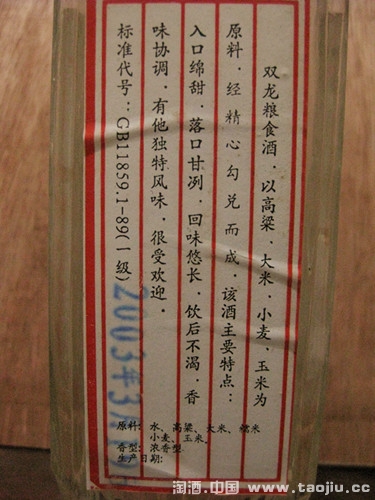 双龙粮食酒．以高粱．大米．小麦．玉米为
原料．经精心勾兑而成．该酒主要特点：
入口绵甜．落口甘冽．回味悠长．饮后不渴．香
味协调．有他独特风味．很受欢迎．
标准代号：GB11859.1-89(一级)
2003年3月
原料：水、高粱、大米、糯米
小麦、玉米．
香型：浓香型
生产日期：
淘酒.中国 www.taojiu.cc